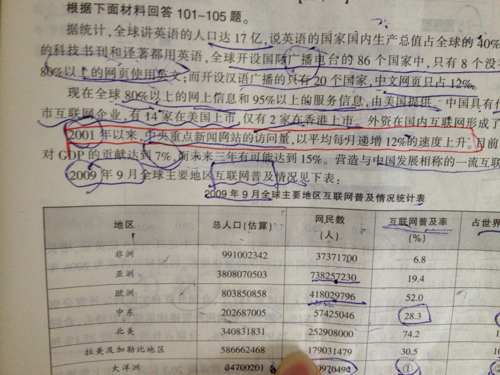 根据下面材料回答101-105题。
据统计，全球讲英语的人口达17亿，说英语的国家国内生产总值占全球的40%
的科技书刊和译著都用英语，全球开设国际广播电台的86个国家中，只有8个没
80%以上的网页使用英文；而开设汉语广播的只有20个国家，中文网页只占12%。
现在全球80%以上的网上信息和95%以上的服务信息，由美国提供。中国具有
市互联网企业，有14家在美国上市，仅有2家在香港上市。外资在国内互联网形成了
2001年以来，中央重点新闻网站的访问量，以平均每月递增12%的速度上升。目前
对GDP的贡献达到7%，而未来三年有可能达到15%。营造与中国发展相称的一流互
2009年9月全球主要地区互联网普及情况见下表：
2009年9月全球主要地区互联网普及情况统计表
地区 总人口(估算) 网民数(人) 互联网普及率(%) 占世界
非洲 991002342 37371700 6.8
亚洲 3808070503 738257230 19.4
欧洲 803850858 418029796 52.0
中东 202687005 57425046 28.3
北美 340831831 252908000 74.2 1
拉美及加勒比地区 586662468 179031479 30.5 10
大洋洲 34700201